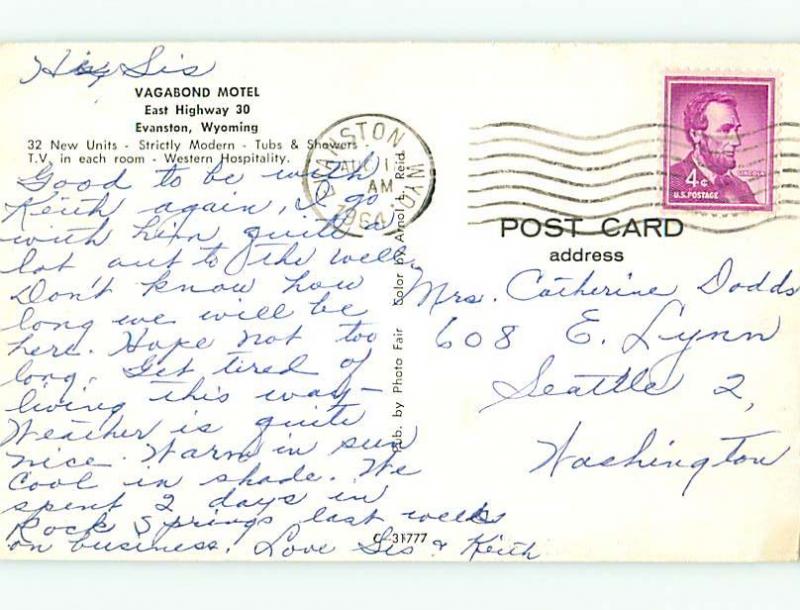 Hi Sis
VAGABOND MOTEL
East Highway 30
Evanston, Wyoming
32 New Units - Strictly Modern - Tubs & Showers
T.V. in each room - Western Hospitality.
Good to be with
Keith again, I go
with him quite a
lot out to the well.
Don't know how
long we will be
here. Hope not too
long. Get tired of
living this way—
Weather is quite
nice. Warm in sun
Cool in shade. We
spent 2 days in
Rock Springs last week
on business. Love Sis & Keith
C-31777
Pub. by Photo Fair Color by Arnol L. Reid.
EVANSTON WYO.
AUG 1
AM
1964
4¢
LINCOLN
U.S. POSTAGE
POST CARD
address
Mrs. Catherine Dodds
608 E. Lynn
Seattle 2,
Washington